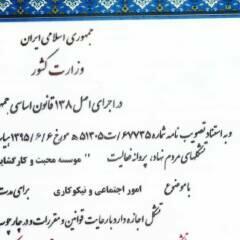 جمهوری اسلامی ایران
وزارت کشور
در اجرای اصل ۱۳۸ قانون اساسی جمهو
و به استناد تصویب نامه شماره ۶۷۷۳۵/ت۵۱۳۰۵ه مورخ ۱۳۹۵/۶/۶ هیا
تشکلهای مردم نهاد، پروانه فعالیت " موسسه محبت و کار گشای
با موضوع امور اجتماعی و نیکوکاری برای مدت
تشکل اجازه دارد با رعایت قوانین و مقررات و در چارچوب